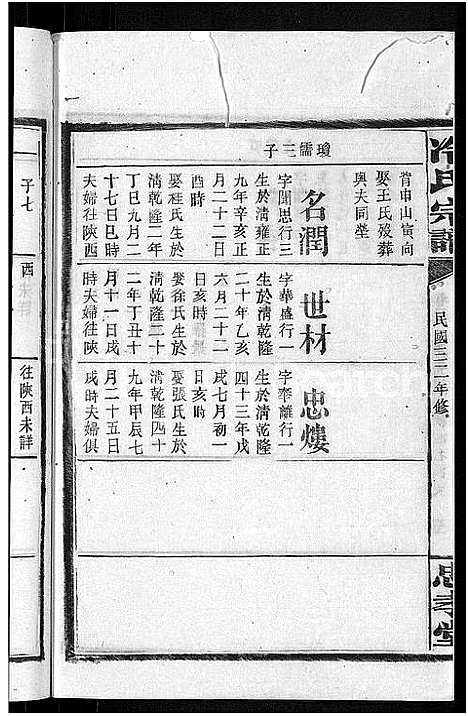 冷氏宗譜
民國三二年修
忠孝堂
背申山寅向
娶王氏殁葬
與夫同塋
瓊儒三子
名潤
字聞思行三
生於清雍正
九年辛亥正
月二十二日
酉時
娶桂氏生於
清乾隆二年
丁巳九月二
十七日巳時
夫婦往陝西
世材
字華盛行一
生於清乾隆
二十年乙亥
六月二十二
日亥時
娶徐氏生於
清乾隆二十
二年丁丑十
月十一日戌
時夫婦往陝
忠㷰
字奉離行一
生於清乾隆
四十三年戊
戌七月初一
日亥時
娶張氏生於
清乾隆四十
九年甲辰七
月二十五日
戌時夫婦俱
子七
西
往陝西未詳